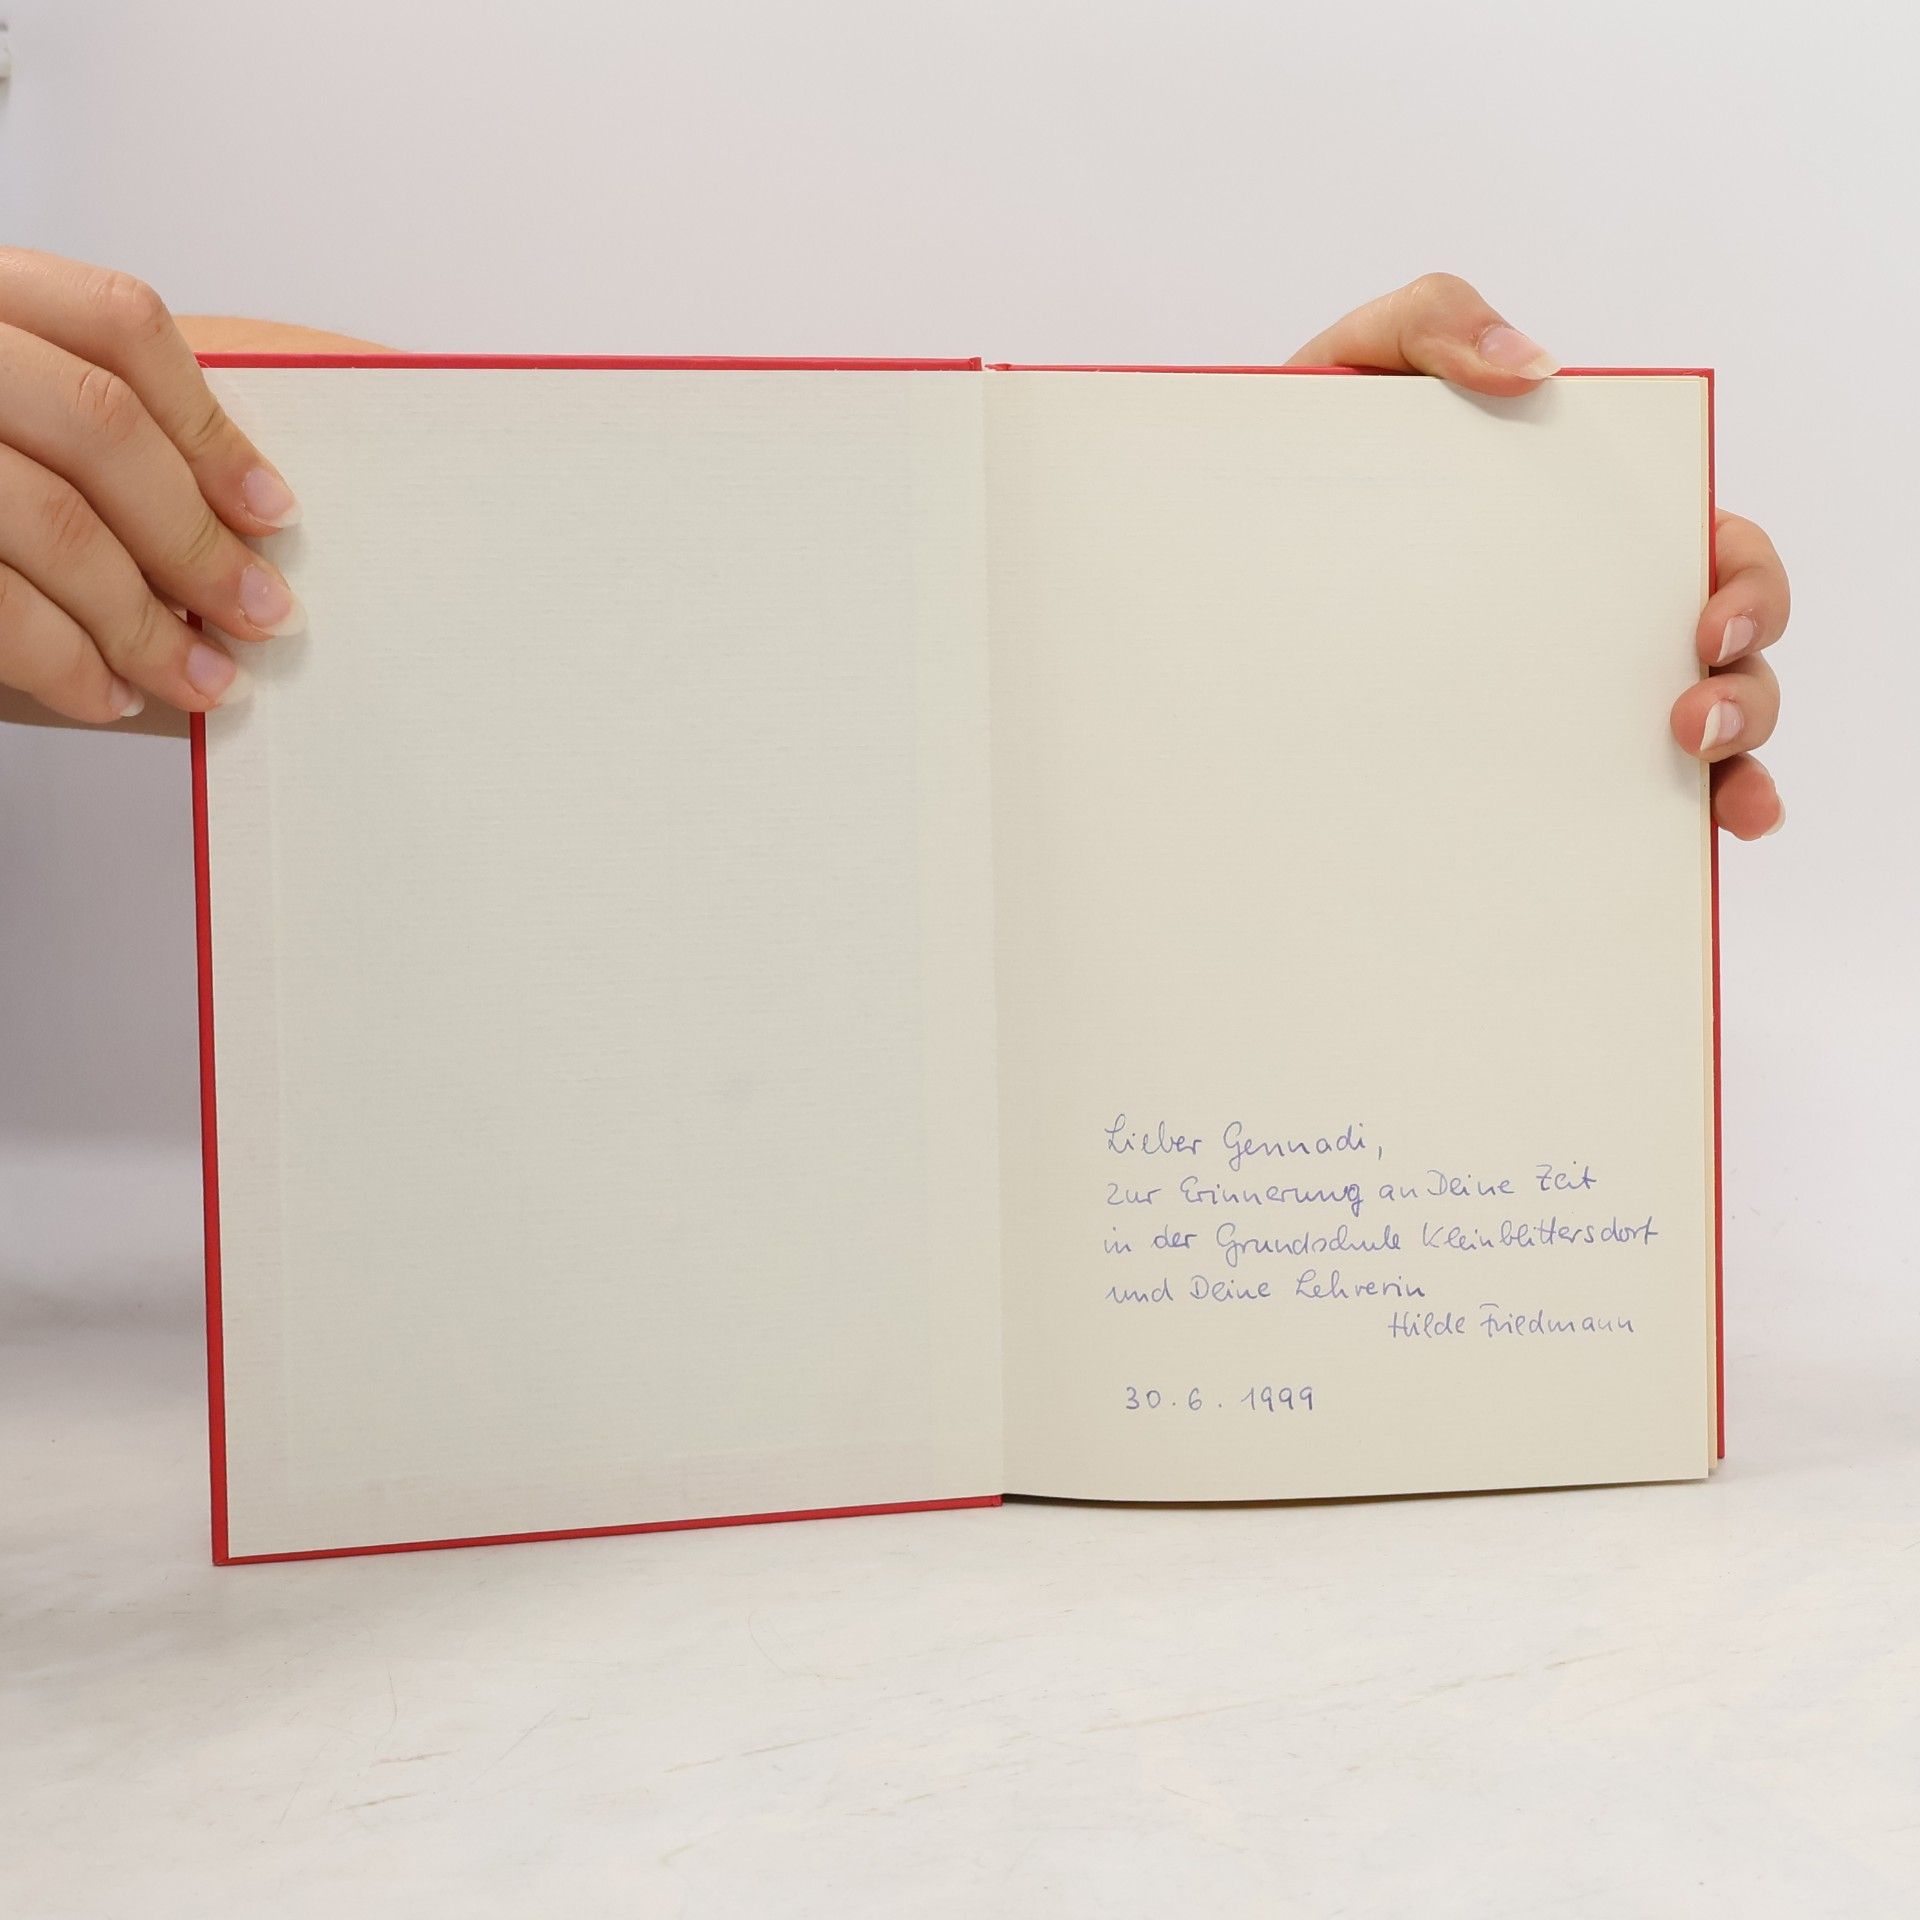 Lieber Gennadi,
zur Erinnerung an Deine Zeit
in der Grundschule Kleinblittersdorf
und Deine Lehrerin
Hilde Friedmann
30.6.1999